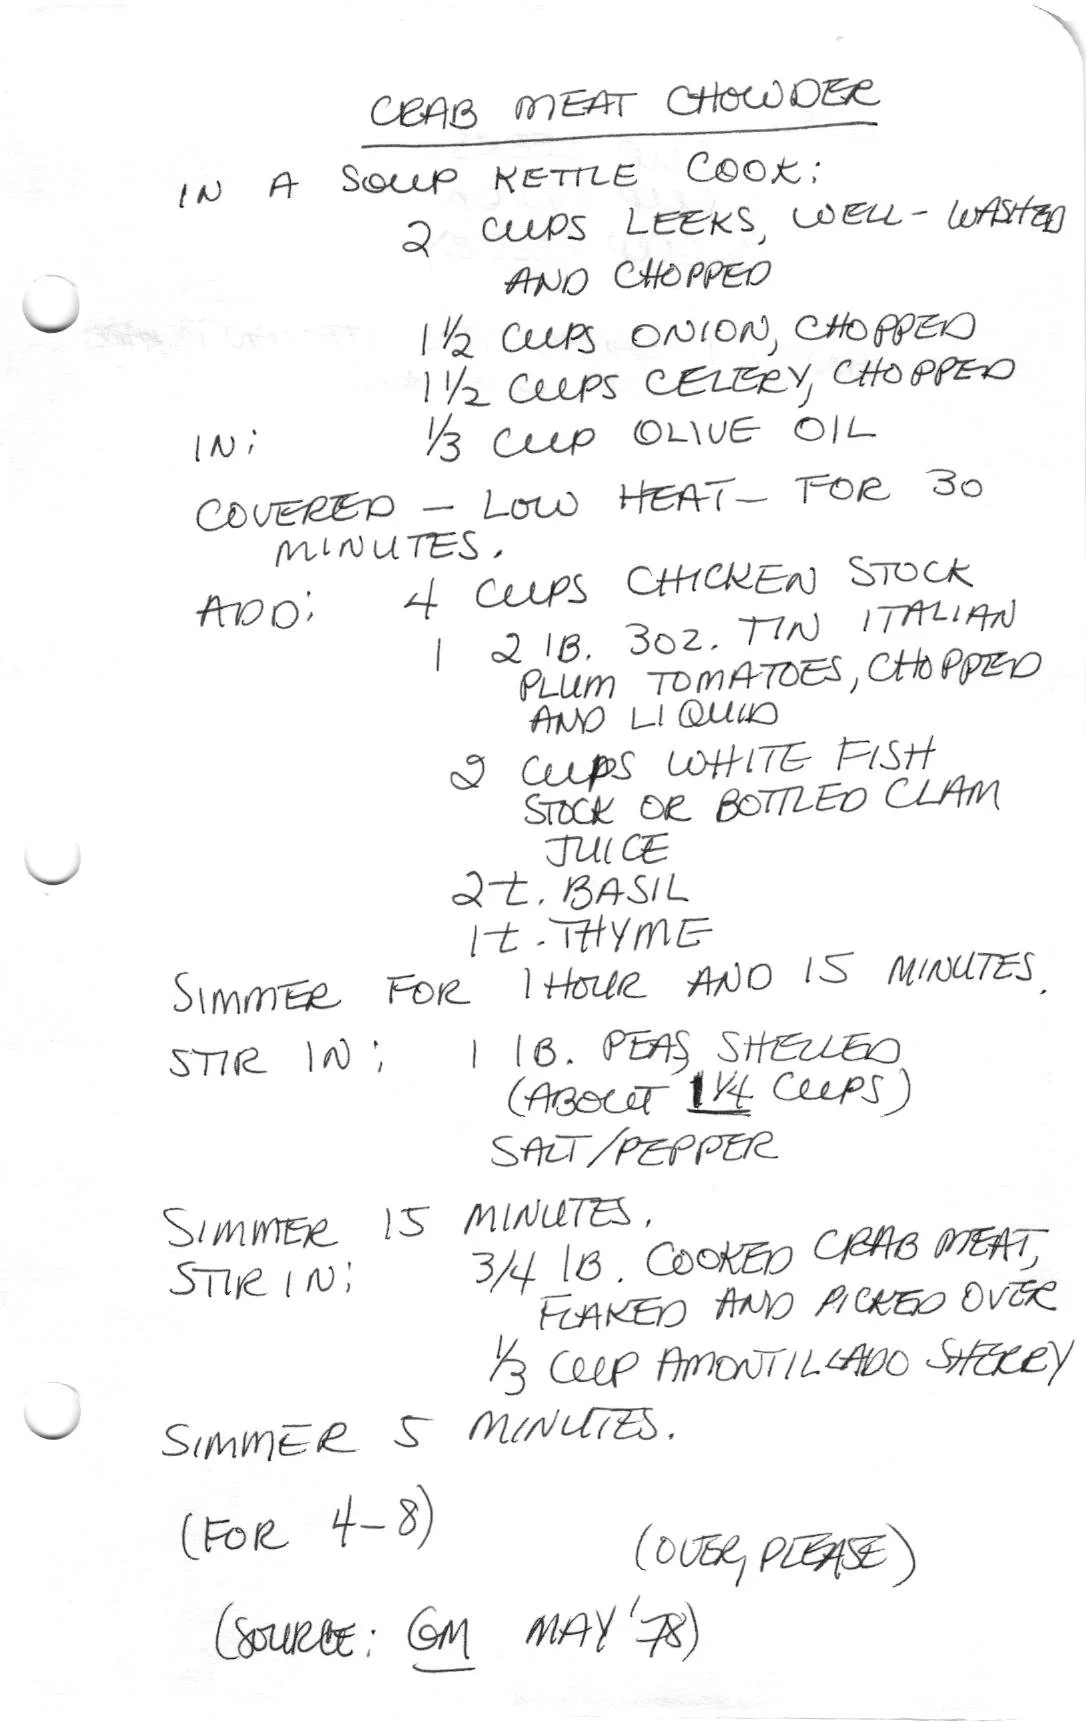 CRAB MEAT CHOWDER
IN A SOUP KETTLE COOK:
2 CUPS LEEKS, WELL-WASHED
AND CHOPPED
1 1/2 CUPS ONION, CHOPPED
1 1/2 CUPS CELERY, CHOPPED
IN: 1/3 CUP OLIVE OIL
COVERED - LOW HEAT - FOR 30
MINUTES.
ADD: 4 CUPS CHICKEN STOCK
1 2 lB. 3oz. TIN ITALIAN
PLUM TOMATOES, CHOPPED
AND LIQUID
2 CUPS WHITE FISH
STOCK OR BOTTLED CLAM
JUICE
2 t. BASIL
1 t. THYME
SIMMER FOR 1 HOUR AND 15 MINUTES.
STIR IN: 1 lB. PEAS, SHELLED
(ABOUT 1 1/4 CUPS)
SALT/PEPPER
SIMMER 15 MINUTES.
STIR IN: 3/4 lB. COOKED CRAB MEAT,
FLAKED AND PICKED OVER
1/3 CUP AMONTILLADO SHERRY
SIMMER 5 MINUTES.
(FOR 4-8)
(OVER, PLEASE)
(SOURCE: GM MAY '78)